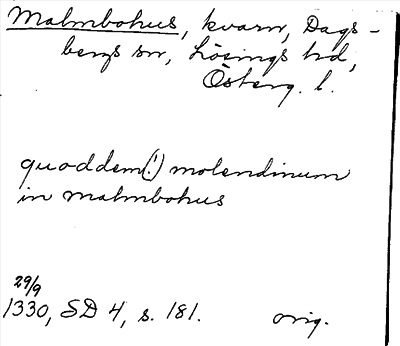 Malmbohus, kvarn, Dags-
bergs sn, Lösings hd,
Österg. l.
quoddem(!) molendinum
in malmbohus
29/9
1330, SD 4, s. 181. orig.